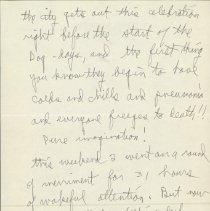 the city gets out this celebration
right before the start of the
Dog-days, and the first thing
you know they begin to have
colds and chills and pneumonia
and everyone freezes to death!!
Pure imagination!
This weekend I went on a round
of merriment for 21 hours
of wakeful attention. But now